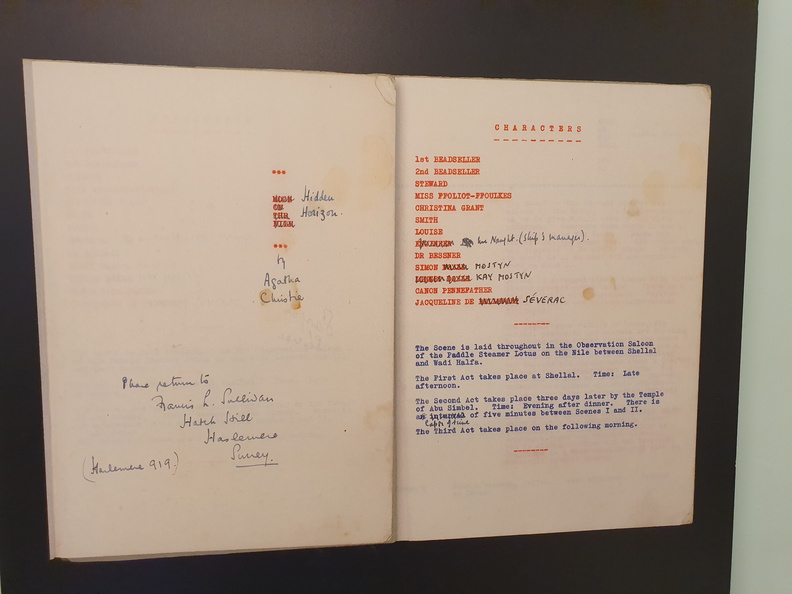 ***
MOON Hidden
ON
THE Horizon.
NILE
***
by
Agatha
Christie
Please return to
Francis L. Sullivan
Haslemere
Surrey.
(Haslemere 919.)
CHARACTERS
1st BEADSELLER
2nd BEADSELLER
STEWARD
MISS FFOLIOT-FFOULKES
CHRISTINA GRANT
SMITH
LOUISE
McNaught. (Ship's manager).
DR BESSNER
SIMON MOSTYN
KAY MOSTYN
CANON PENNEFATHER
JACQUELINE DE SÉVERAC
The Scene is laid throughout in the Observation Saloon
of the Paddle Steamer Lotus on the Nile between Shellal
and Wadi Halfa.
The First Act takes place at Shellal. Time: Late
afternoon.
The Second Act takes place three days later by the Temple
of Abu Simbel. Time: Evening after dinner. There is
an interval of five minutes between Scenes I and II.
The Third Act takes place on the following morning.